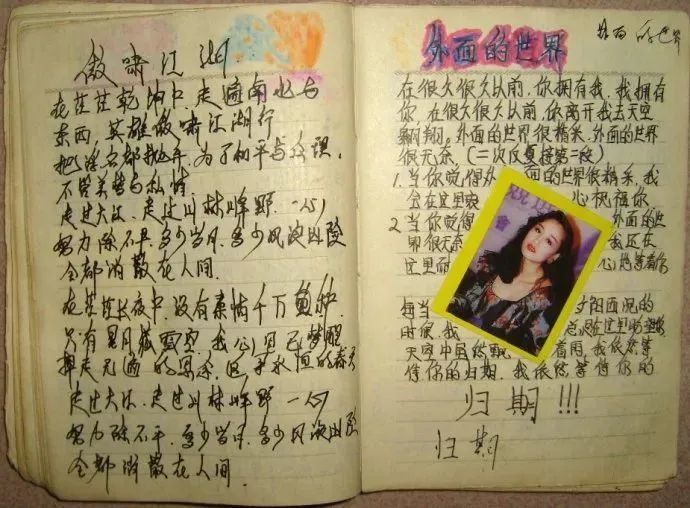 傲啸江湖
在茫茫乾坤中，走遍南北与
东西，英雄傲啸江湖行
把浮名都抛弃，为了和平与公理，
不管美梦与私情
走过大江，走过山林峰野，一心
努力除不平，多少岁月，多少风波凶险
全都消散在人间．
在茫茫长夜中，没有亲情千万
只有星月
走过大江，走过山林峰野，一心
努力除不平，多少岁月，多少风波凶险
全都消散在人间．
外面的世界
外面的世界
在很久很久以前，你拥有我，我拥有
你，在很久很久以前，你离开我去天空
翱翔，外面的世界很精采，外面的世界
很无奈，（二次反复接第二段）
1. 当你觉得外面的世界很精采，我
会在这里衷心祝福你
2 当你觉得外面的世
界很无奈我还在
这里耐心地等着你
每当夕阳西沉的
时候，我总是在这里盼望你
天空中虽然飘着雨，我依然等
待你的归期，我依然等待你的
归期!!!
归期